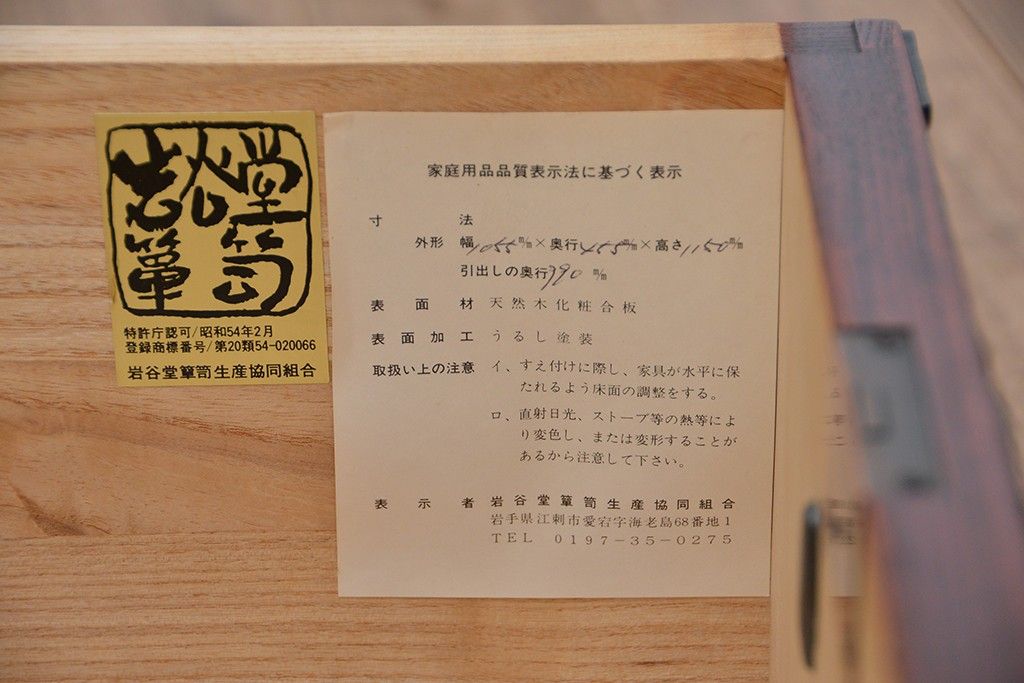 岩谷堂簞笥
特許庁認可/昭和54年2月
登録商標番号/第20類54-020066
岩谷堂簞笥生産協同組合
家庭用品品質表示法に基づく表示
寸法
外形 幅1055m/m×奥行455m/m×高さ1150m/m
引出しの奥行390m/m
表面材 天然木化粧合板
表面加工 うるし塗装
取扱い上の注意 イ、すえ付けに際し、家具が水平に保
たれるよう床面の調整をする。
ロ、直射日光、ストーブ等の熱等によ
り変色し、または変形することが
あるから注意して下さい。
表示者 岩谷堂簞笥生産協同組合
岩手県江刺市愛宕字海老島68番地1
TEL 0197-35-0275